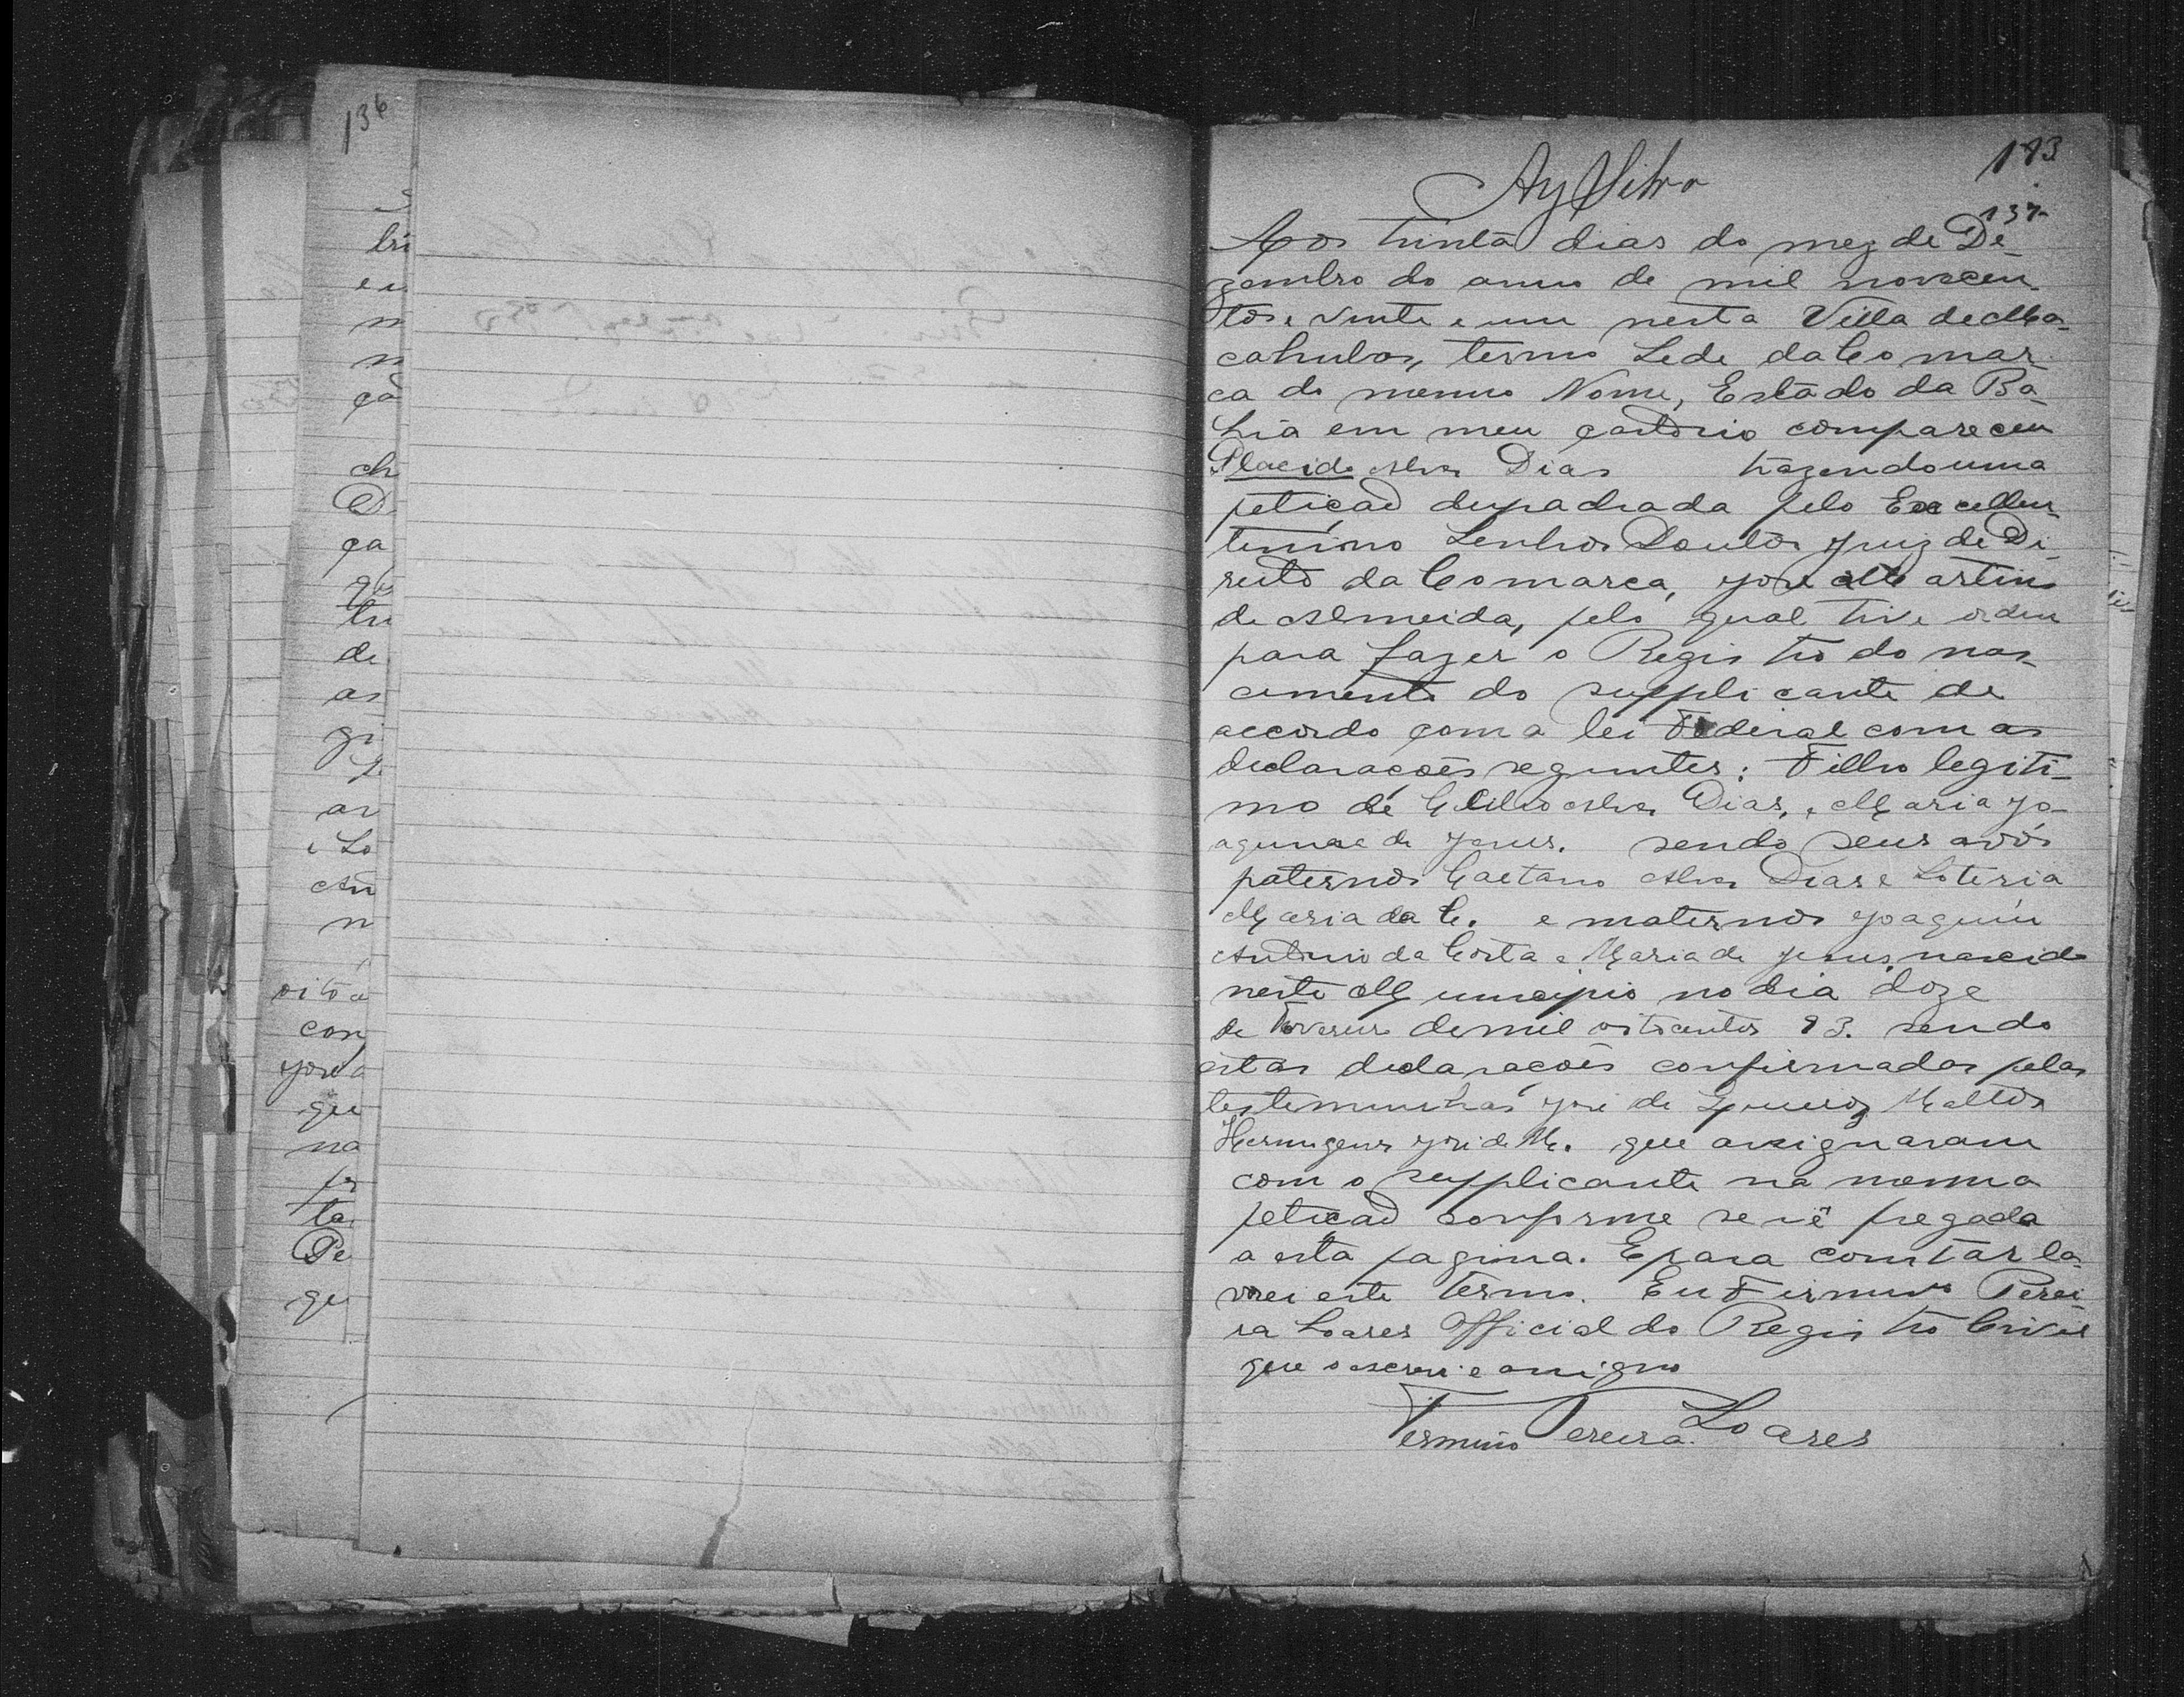 136
S
bri
eu
m
n
çã
ch
D
ça
qu
tu
de
as
gi
ar
e So
An
n
oito a
con
José a
que
na
pr
ta
Pe
qu
AySilva
193
137
Aos trinta dias do mez de De-
zembro do anno de mil novecen-
tos e vinte e um nesta Villa de Ma-
cahubas, termo Sede da Comar-
ca do mesmo Nome, Estado da Ba-
hia em meu cartorio compareceu
Placido Alves Dias trazendo uma
petição despachada pelo Excellen-
tissimo Senhor Doutor Juiz de Di-
reito da Comarca, José Martins
de Almeida, pelo qual tive ordem
para fazer o Registro do nas-
cimento do supplicante de
accordo com a lei Federal com as
declarações seguintes: Filho legiti-
mo de Alves Dias, e Maria Jo-
aquina de Jesus. sendo seus avós
paternos Caetano Alves Dias e Loteria
Maria da C. e maternos Joaquim
Antonio da Costa e Maria de Jesus, nascido
neste Municipio no dia doze
de demil oitocentos 93. sendo
estas declarações confirmadas pelas
testemunhas José de Queiroz Mattos
Hermogenes José de M. que assignaram
com o supplicante na mesma
petição conforme se vê pregada
a esta pagina. E para constar la-
vrei este termo. Eu Firmino Perei-
ra Soares Official do Registro Civil
que o escrevi e assigno
Firmino Pereira Soares